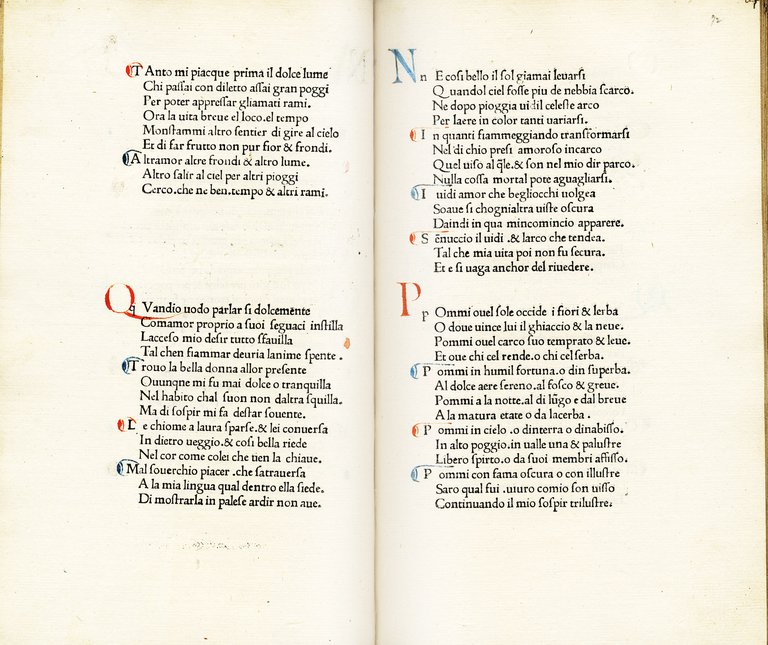 TAnto mi piacque prima il dolce lume
Chi paſſai con diletto aſſai gran poggi
Per poter appreſſar gliamati rami.
Ora la uita breue el loco.el tempo
Monſtammi altro ſentier di gire al cielo
Et di far frutto non pur fior & frondi.
Altramor altre frondi & altro lume.
Altro ſalir al ciel per altri pioggi
Cerco.che ne ben.tempo & altri rami.
Q
q Vandio uodo parlar ſi dolcemēte
Comamor proprio a ſuoi ſeguaci inſtilla
Lacceſo mio deſir tutto ſfauilla
Tal chen fiammar deuria lanime ſpente .
Trouo la bella donna allor preſente
Ouunqne mi fu mai dolce o tranquilla
Nel habito chal ſuon non daltra ſquilla.
Ma di ſoſpir mi fa deſtar ſouente.
Le chiome a laura ſparſe.& lei conuerſa
In dietro ueggio.& coſi bella riede
Nel cor come colei che tien la chiaue.
Mal ſouerchio piacer .che ſatrauerſa
A la mia lingua qual dentro ella ſiede.
Di moſtrarla in paleſe ardir non aue.
92
N
n E coſi bello il ſol giamai leuarſi
Quandol ciel foſſe piu de nebbia ſcarco.
Ne dopo pioggia uidil celeſte arco
Per laere in color tanti uariarſi.
In quanti fiammeggiando tranſformarſi
Nel di chio preſi amoroſo incarco
Quel uiſo al q̄le.& ſon nel mio dir parco.
Nulla coſſa mortal pote aguagliarſi.
I uidi amor che begliocchi uolgea
Soaue ſi chognialtra uiſte oſcura
Daindi in qua mincomincio apparere.
Sēnuccio il uidi .& larco che tendea.
Tal che mia uita poi non fu ſecura.
Et e ſi uaga anchor del riuedere.
P
p Ommi ouel ſole occide i fiori & lerba
O doue uince lui il ghiaccio & la neue.
Pommi ouel carco ſuo temprato & leue.
Et oue chi cel rende.o chi cel ſerba.
Pommi in humil fortuna.o din ſuperba.
Al dolce aere ſereno.al foſco & greue.
Pommi a la notte.al di lūgo e dal breue
A la matura etate o da lacerba .
Pommi in cielo .o dinterra o dinabiſſo.
In alto poggio.in ualle una & paluſtre
Libero ſpirto.o da ſuoi membri affiſſo.
Pommi con fama oſcura o con illuſtre
Saro qual fui .uiuro comio ſon uiſſo
Continuando il mio ſoſpir triluſtre.